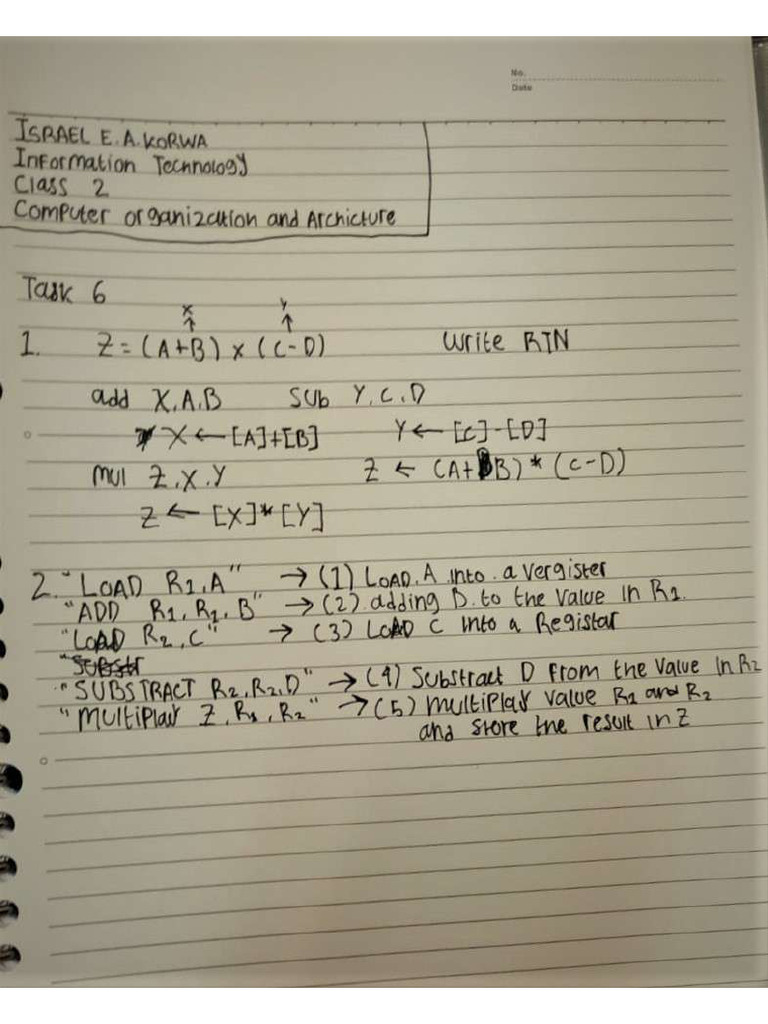 No.
Date
ISRAEL E.A.KORWA
Information Technology
Class 2
Computer organization and Archicture
Task 6
X Y
↑ ↑
1. Z = (A+B) x (C-D) Write RTN
add X,A,B Sub Y,C,D
X ← [A]+[B] Y ← [C]-[D]
mul Z,X,Y Z ← (A+B) * (C-D)
Z ← [X]*[Y]
2. "LOAD R1,A" → (1) LOAD A into a vergister
"ADD R1, R1, B" → (2) adding B to the value in R1.
"LOAD R2,C" → (3) LOAD C into a Registar
"SUBSTRACT R2,R2,D" → (4) Substract D from the value in R2
"MULTIPLAY Z, R1, R2" → (5) multiplay value R1 and R2
and store the result in Z